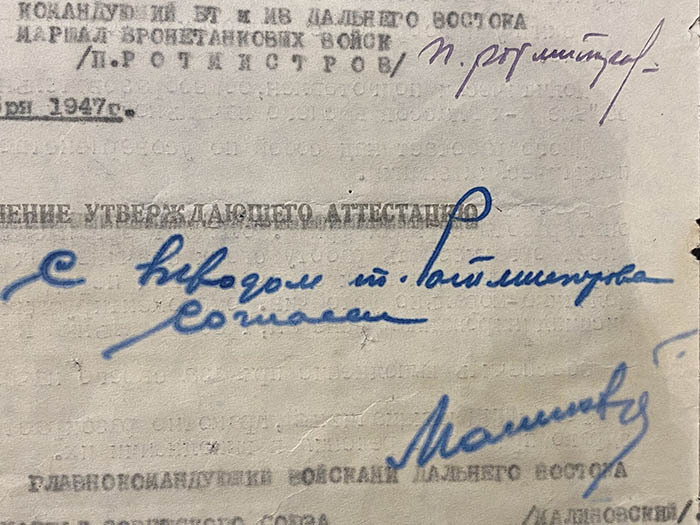 КОМАНДУЮЩИЙ БТ и МВ ДАЛЬНЕГО ВОСТОКА
МАРШАЛ БРОНЕТАНКОВЫХ ВОЙСК
/П.РОТМИСТРОВ/ П. Ротмистров
бря 1947г.
ЧЕНИЕ УТВЕРЖДАЮЩЕГО АТТЕСТАЦИЮ
С выводом т. Ротмистрова
согласен
Малиновский
ГЛАВНОКОМАНДУЮЩИЙ ВОЙСКАМИ ДАЛЬНЕГО ВОСТОКА
МАРШАЛ СОВЕТСКОГО СОЮЗА /МАЛИНОВСКИЙ/